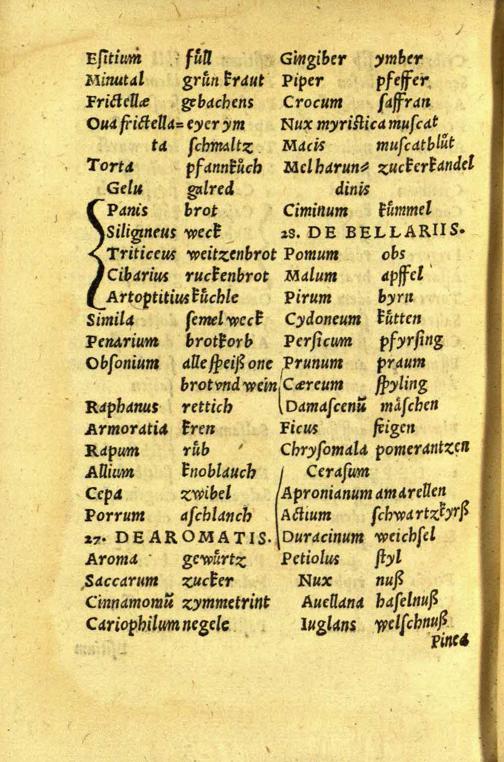 Eſitium fuͤll
Minutal gruͤn kraut
Frictellæ gebachens
Oua frictella= eyer ym
ta ſchmaltz
Torta pfannkuͤch
Gelu galred
Panis brot
Siligineus weck
Triticeus weitzenbrot
Cibarius ruckenbrot
Artoptitius kuͤchle
Simila ſemel weck
Penarium brotkorb
Obſonium alle ſpeiß one
brot vnd wein
Raphanus rettich
Armoratia kren
Rapum ruͤb
Allium knoblauch
Cepa zwibel
Porrum aſchlanch
27. DE AROMATIS.
Aroma gewuͤrtz
Saccarum zucker
Cinnamomū zymmetrint
Cariophilum negele
Gingiber ymber
Piper pfeffer
Crocum ſaffran
Nux myriſtica muſcat
Macis muſcatbluͤt
Mel harun= zuckerkandel
dinis
Ciminum kuͤmmel
28. DE BELLARIIS.
Pomum obs
Malum apffel
Pirum byrn
Cydoneum kuͤtten
Perſicum pfyrſing
Prunum praum
Cæreum ſpyling
Damaſcenū maͤſchen
Ficus feigen
Chryſomala pomerantzen
Ceraſum
Apronianum amarellen
Actium ſchwartzkyrß
Duracinum weichſel
Petiolus ſtyl
Nux nuß
Auellana haſelnuß
Iuglans welſchnuß
Pinea